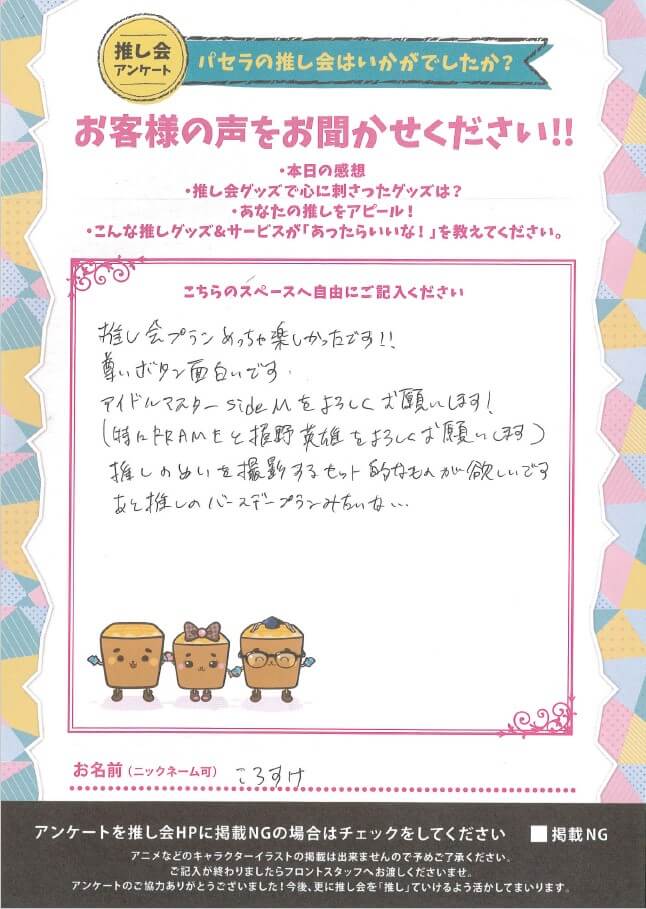 推し会
アンケート
パセラの推し会はいかがでしたか？
お客様の声をお聞かせください!!
・本日の感想
・推し会グッズで心に刺さったグッズは？
・あなたの推しをアピール！
・こんな推しグッズ&サービスが「あったらいいな！」を教えてください。
こちらのスペースへ自由にご記入ください
推し会プランめっちゃ楽しかったです!!
尊いボタン面白いです．
アイドルマスターsideMをよろしくお願いします!
(特にFRAMEと握野英雄をよろしくお願いします)
推しのぬいを撮影するセット的なものが欲しいです
あと推しのバースデープランみたいな…
お名前（ニックネーム可） ころすけ
アンケートを推し会HPに掲載NGの場合はチェックをしてください ■掲載NG
アニメなどのキャラクターイラストの掲載は出来ませんので予めご了承ください。
ご記入が終わりましたらフロントスタッフへお渡しくださいませ。
アンケートのご協力ありがとうございました！今後、更に推し会を「推し」ていけるよう活かしてまいります。